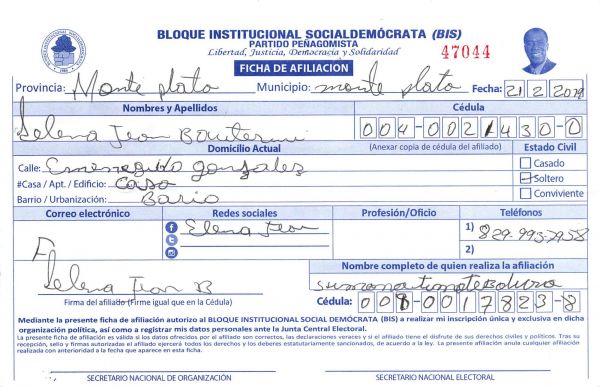 BLOQUE INSTITUCIONAL SOCIALDEMÓCRATA (BIS)
PARTIDO PEÑAGOMISTA
Libertad, Justicia, Democracia y Solidaridad
47044
FICHA DE AFILIACIÓN
Provincia: Monte plata Municipio: monte plata Fecha: 21/2/2019
Nombres y Apellidos Cédula
Selena Jean 004-0021430-0
Domicilio Actual (Anexar copia de cédula del afiliado) Estado Civil
Calle: gonzalez Casado
#Casa / Apt. / Edificio: Casa Soltero
Barrio / Urbanización: Bario Conviviente
Correo electrónico Redes sociales Profesión/Oficio Teléfonos
Elena Jean 1) 829-993-7958
2)
Selena Jean B
Firma del afiliado (Firme igual que en la Cédula)
Nombre completo de quien realiza la afiliación
Cédula: 008-0017823-8
Mediante la presente ficha de afiliación autorizo al BLOQUE INSTITUCIONAL SOCIAL DEMÓCRATA (BIS) a realizar mi inscripción única y exclusiva en dicha
organización política, así como a registrar mis datos personales ante la Junta Central Electoral.
La presente ficha de afiliación es válida si los datos ofrecidos por el afiliado son correctos, las declaraciones veraces y si el afiliado tiene el disfrute de sus derechos civiles y políticos. Tras su
recepción, sello y firmas autorizadas el afiliado ejercerá todos los derechos y los deberes estatutariamente sancionados, de acuerdo a la ley. La presente afiliación anula cualquier afiliación
realizada con anterioridad a la fecha que aparece en esta ficha.
SECRETARIO NACIONAL DE ORGANIZACIÓN SECRETARIO NACIONAL ELECTORAL